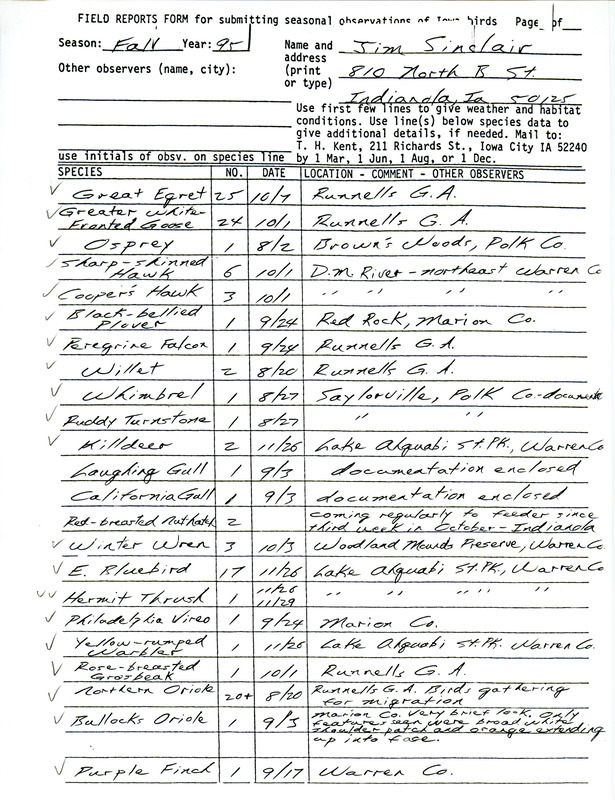 FIELD REPORTS FORM for submitting seasonal observations of Iowa birds Page of
Season: Fall Year: 95
Name and address (print or type) Jim Sinclair
810 North B St.
Indianola, Ia 50125
Other observers (name, city):
Use first few lines to give weather and habitat
conditions. Use line(s) below species data to
give additional details, if needed. Mail to:
T. H. Kent, 211 Richards St., Iowa City IA 52240
by 1 Mar, 1 Jun, 1 Aug, or 1 Dec.
use initials of obsv. on species line
SPECIES NO. DATE LOCATION - COMMENT - OTHER OBSERVERS
✓ Great Egret 25 10/7 Runnells G. A.
✓ Greater White-
Fronted Goose 24 10/1 Runnells G. A.
✓ Osprey 1 8/2 Brown's Woods, Polk Co.
✓ Sharp-shinned
Hawk 6 10/1 D.M. River - northeast Warren Co
✓ Cooper's Hawk 3 10/1 " " " "
✓ Black-bellied
Plover 1 9/24 Red Rock, Marion Co.
✓ Peregrine Falcon 1 9/24 Runnells G. A.
✓ Willet 2 8/20 Runnells G. A.
✓ Whimbrel 1 8/27 Saylorville, Polk Co.-document
✓ Ruddy Turnstone 1 8/27 " "
✓ Killdeer 2 11/26 Lake Ahquabi St. Pk., Warren Co
Laughing Gull 1 9/3 documentation enclosed
California Gull 1 9/3 documentation enclosed
Red-breasted Nuthatch 2 coming regularly to feeder since
third week in October - Indianola
✓ Winter Wren 3 10/3 Woodland Mounds Preserve, Warren Co.
✓ E. Bluebird 17 11/26 Lake Ahquabi St. Pk., Warren Co
✓✓ Hermit Thrush 1 11/26
11/29 " " " "
✓ Philadelphia Vireo 1 9/24 Marion Co.
✓ Yellow-rumped
Warbler 1 11/26 Lake Ahquabi St. Pk. Warren Co.
✓ Rose-breasted
Grosbeak 1 10/1 Runnells G. A.
✓ Northern Oriole 20+ 8/20 Runnells G. A. Birds gathering
for migration
✓ Bullocks Oriole 1 9/3 Marion Co. Very brief look. Only
features seen were broad white
shoulder patch and orange extending
up into face.
✓ Purple Finch 1 9/17 Warren Co.